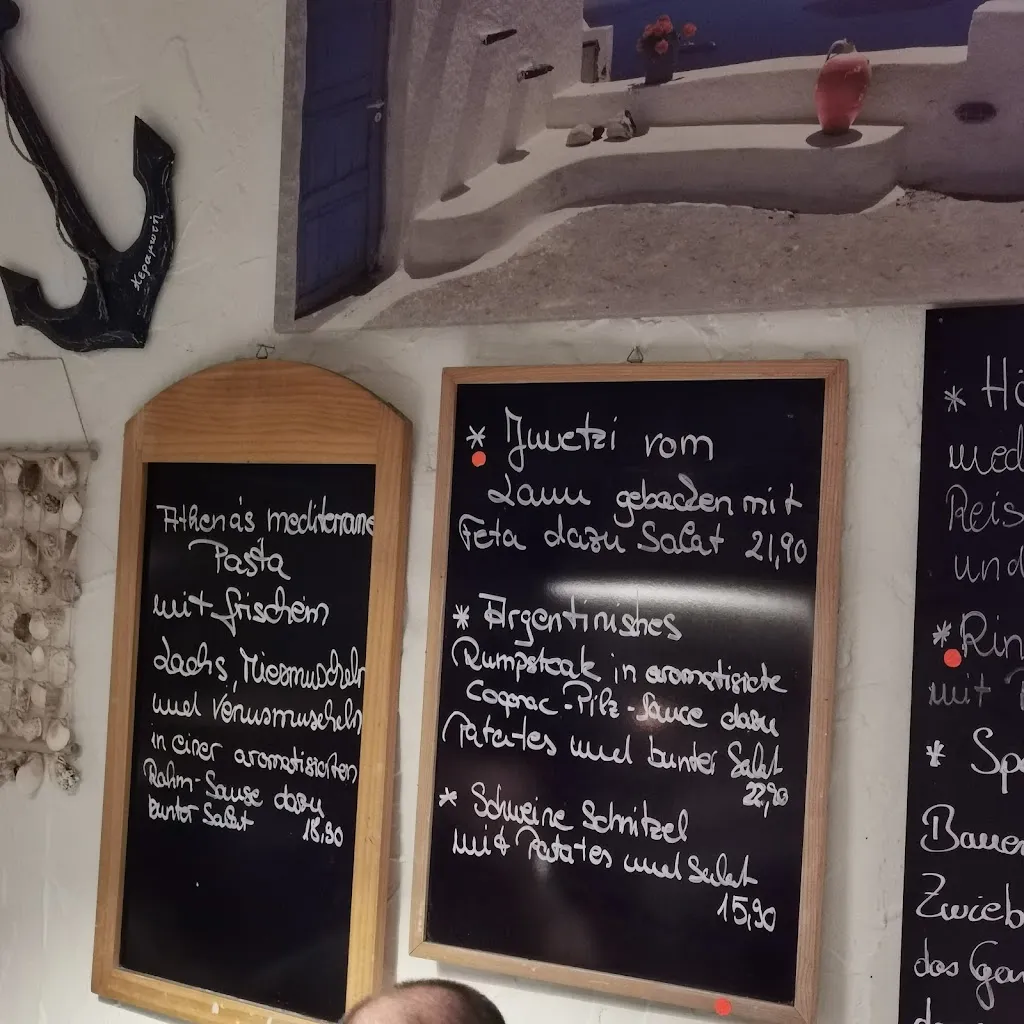 Κεραμωτή
Athena's mediterrane
Pasta
mit frischem
Lachs, Miesmuscheln
und Venusmuscheln
in einer aromatisierten
Rahm-Sause dazu
bunter Salat 18,90
* Juvetzi vom
Lamm gebacken mit
Feta dazu Salat 21,90
* Argentinisches
Rumpsteak in aromatisierte
Cognac-Pilz-Sauce dazu
Patates und bunter Salat
22,90
* Schweine Schnitzel
mit Patates und Salat
15,90
* Hä
med
Reis
und
* Rin
mit
* Spe
Bauer
Zwieb
das Gan